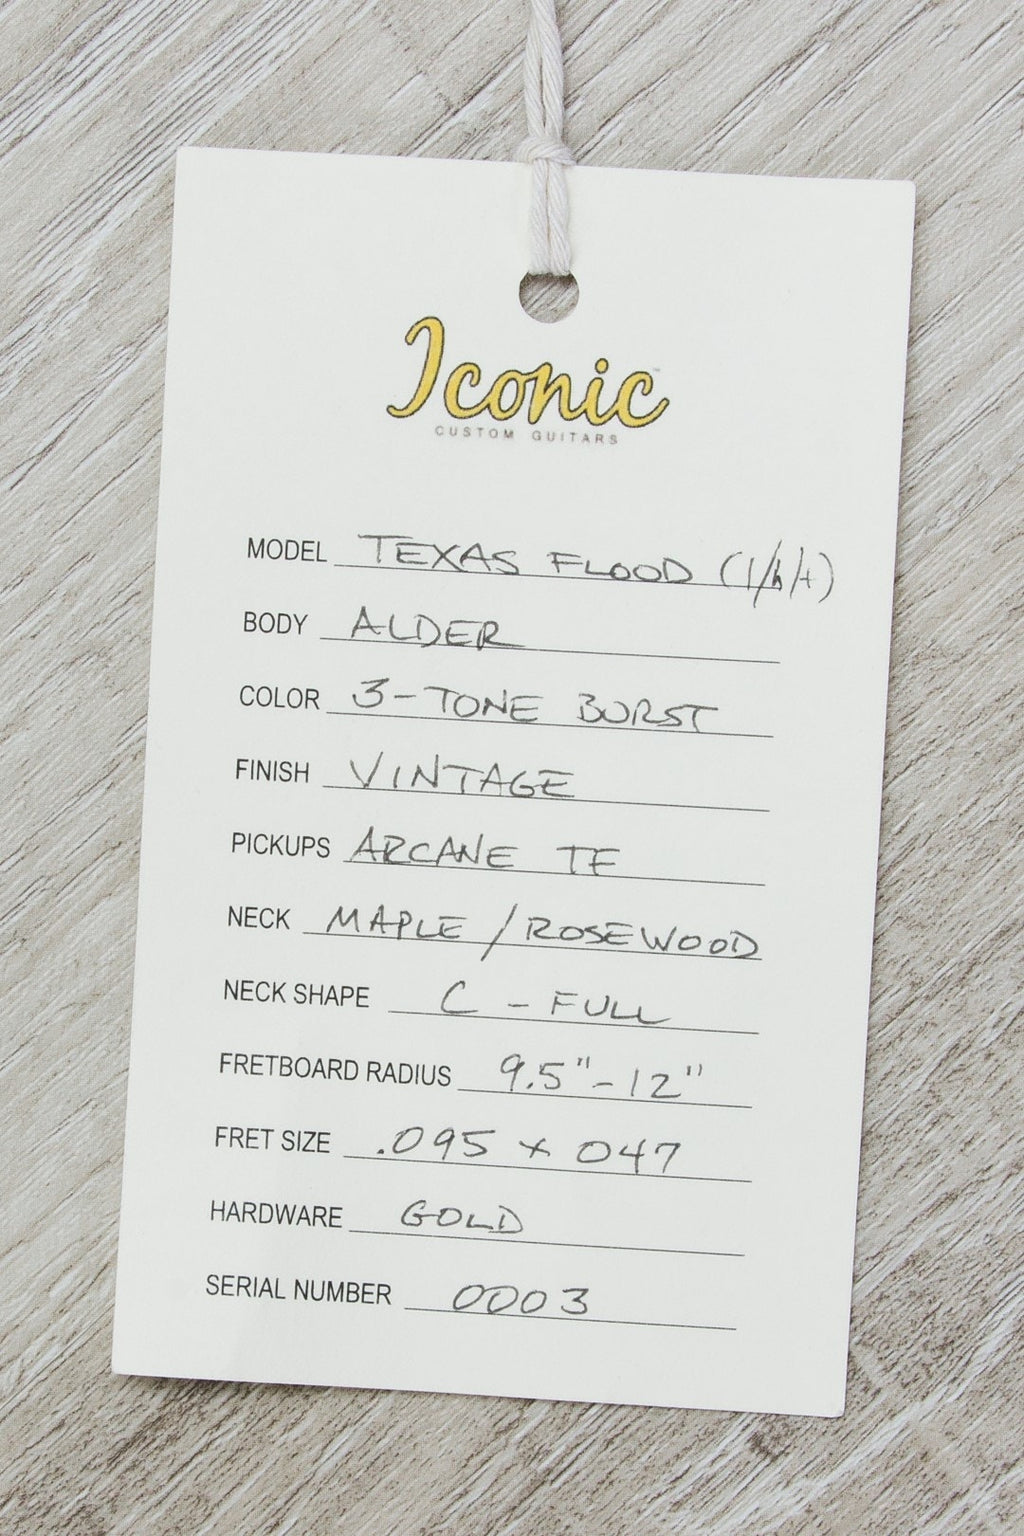 Iconic
CUSTOM GUITARS
MODEL TEXAS FLOOD
BODY ALDER
COLOR 3-TONE BURST
FINISH VINTAGE
PICKUPS ARCANE TF
NECK MAPLE / ROSEWOOD
NECK SHAPE C - FULL
FRETBOARD RADIUS 9.5" - 12"
FRET SIZE .095 x 047
HARDWARE GOLD
SERIAL NUMBER 0003